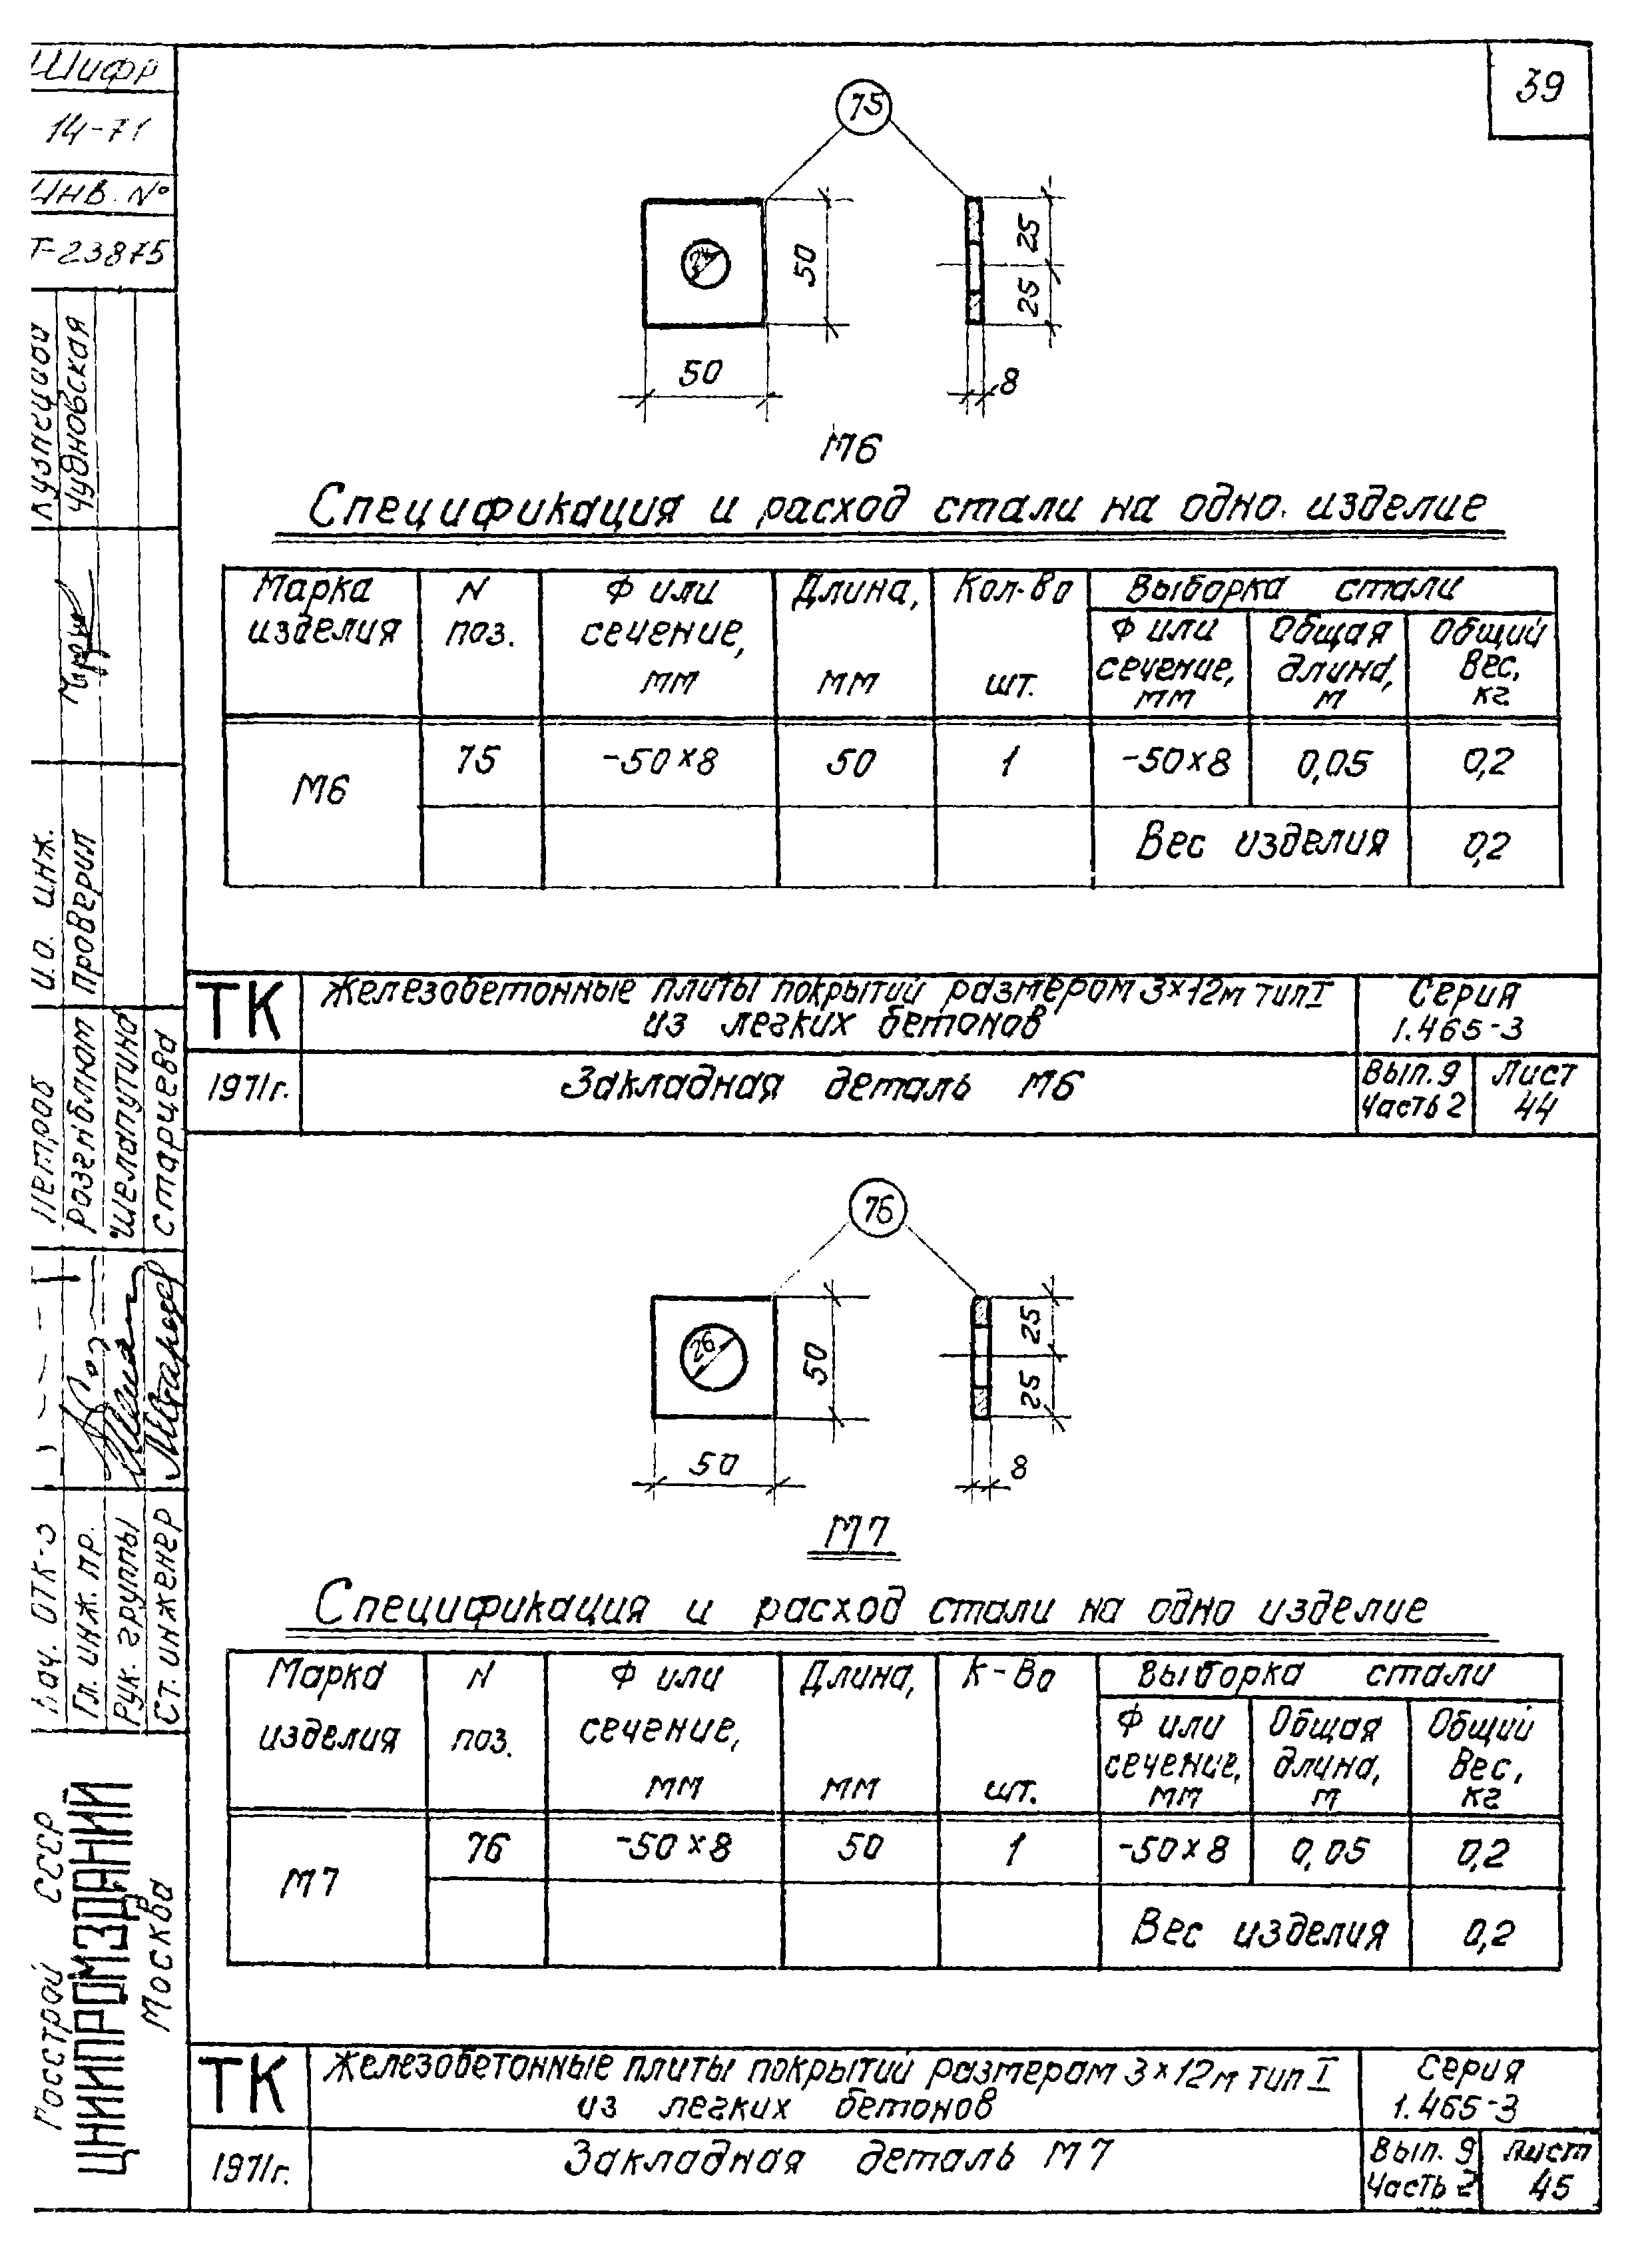 Шифр
14-71
Инв. №
Т-23875
39
75
24
50
50
25
25
8
М6
Спецификация и расход стали на одно. изделие
Марка изделия
N поз.
Ф или сечение, мм
Длина, мм
Кол-во шт.
Выборка стали
Ф или сечение, мм
Общая длина, м
Общий вес, кг
М6
75
-50×8
50
1
-50×8
0,05
0,2
Вес изделия
0,2
ТК
Железобетонные плиты покрытий размером 3×12м тип I
из легких бетонов
Серия
1.465-3
1971г.
Закладная деталь М6
Вып. 9
Часть 2
Лист
44
76
26
50
50
25
25
8
М7
Спецификация и расход стали на одно изделие
Марка изделия
N поз.
Ф или сечение, мм
Длина, мм
К-во шт.
Выборка стали
Ф или сечение, мм
Общая длина, м
Общий вес, кг
М7
76
-50×8
50
1
-50×8
0,05
0,2
Вес изделия
0,2
ТК
Железобетонные плиты покрытий размером 3×12м тип I
из легких бетонов
Серия
1.465-3
1971г.
Закладная деталь М7
Вып. 9
Часть 2
Лист
45
Чудновская
И.о. инж.
Проверил
Петров
Розенблют
Шелапутина
Старцева
Нач. ОТК-3
Гл. инж. пр.
Рук. группы
Ст. инженер
Госстрой СССР
ЦНИИПРОМЗДАНИЙ
Москва